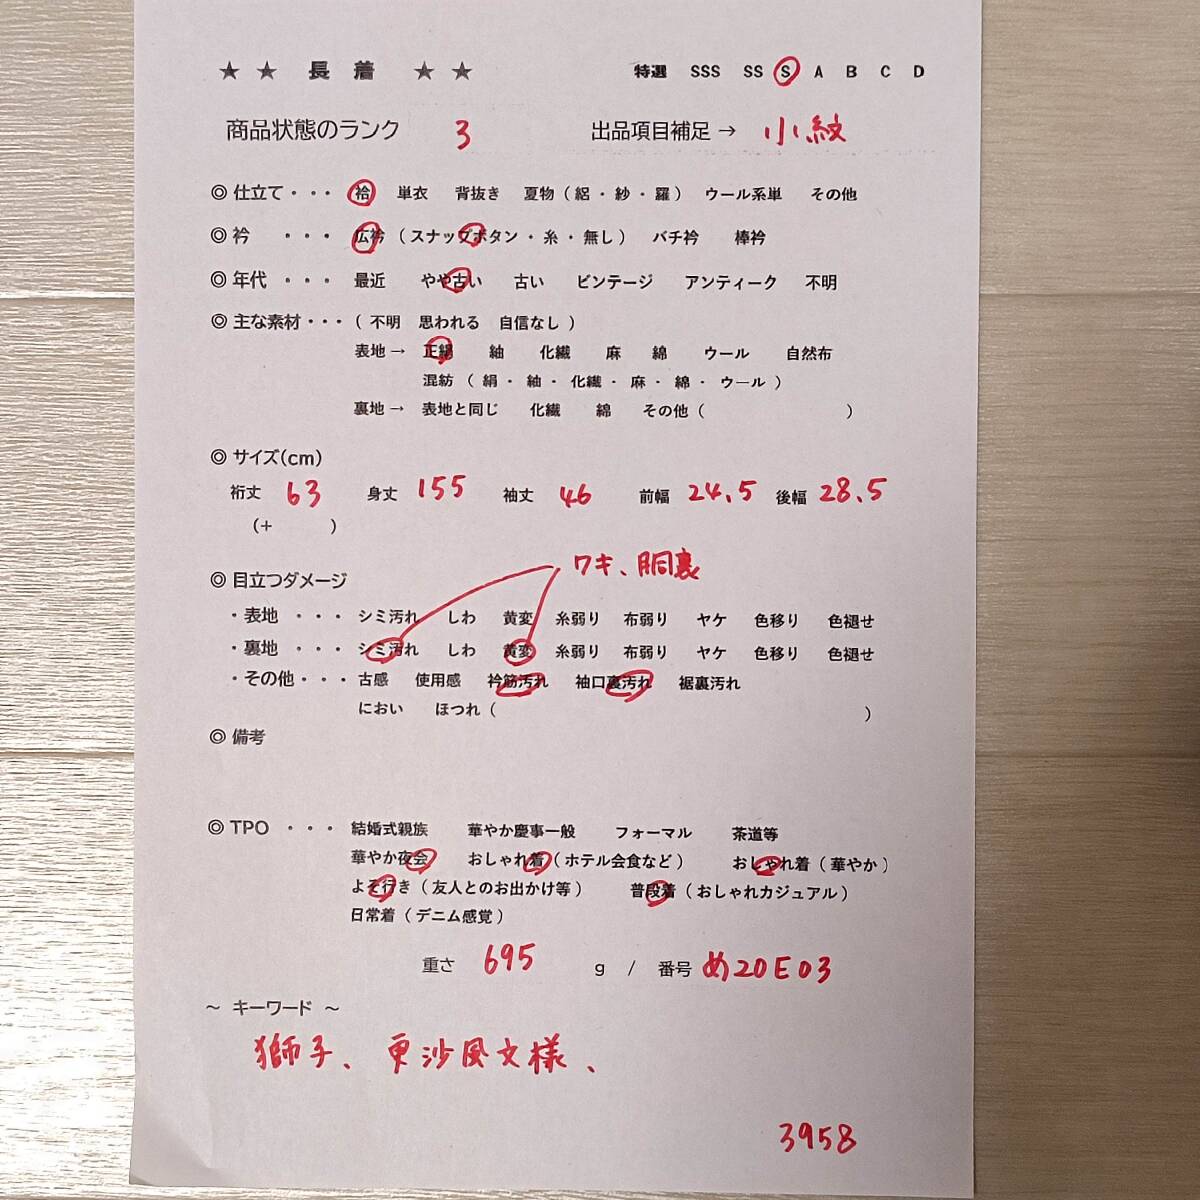 ★ ★ 長 着 ★ ★ 特選 SSS SS S A B C D
商品状態のランク 3 出品項目補足 → 小紋
◎ 仕立て ・・・ 袷 単衣 背抜き 夏物 ( 絽 ・ 紗 ・ 羅 ) ウール系単 その他
◎ 衿 ・・・ 広衿 ( スナップボタン ・ 糸 ・ 無し ) バチ衿 棒衿
◎ 年代 ・・・ 最近 やや古い 古い ビンテージ アンティーク 不明
◎ 主な素材 ・・・ ( 不明 思われる 自信なし )
表地 → 正絹 紬 化繊 麻 綿 ウール 自然布
混紡 ( 絹 ・ 紬 ・ 化繊 ・ 麻 ・ 綿 ・ ウール )
裏地 → 表地と同じ 化繊 綿 その他 ( )
◎ サイズ(cm)
裄丈 63 身丈 155 袖丈 46 前幅 24.5 後幅 28.5
(+ )
ワキ、胴裏
◎ 目立つダメージ
・表地 ・・・ シミ汚れ しわ 黄変 糸弱り 布弱り ヤケ 色移り 色褪せ
・裏地 ・・・ シミ汚れ しわ 黄変 糸弱り 布弱り ヤケ 色移り 色褪せ
・その他 ・・・ 古感 使用感 衿筋汚れ 袖口裏汚れ 裾裏汚れ
におい ほつれ ( )
◎ 備考
◎ TPO ・・・ 結婚式親族 華やか慶事一般 フォーマル 茶道等
華やか夜会 おしゃれ着 ( ホテル会食など ) おしゃれ着 ( 華やか )
よそ行き ( 友人とのお出かけ等 ) 普段着 ( おしゃれカジュアル )
日常着 ( デニム感覚 )
重さ 695 g / 番号 め20E03
～ キーワード ～
獅子、更沙風文様、
3958